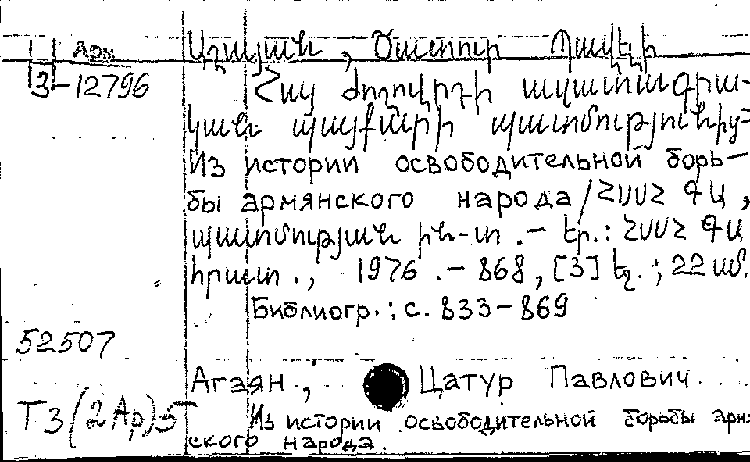 Арм
3-12796
Աղայան, Ծատուր Պավելի
Հայ ժողովրդի ազատագրա-
կան պայքարի պատմությունից-
Из истории освободительной борь-
бы армянского народа/ՀՍՍՀ ԳԱ,
պատմության ին-տ.- Եր.: ՀՍՍՀ ԳԱ
հրատ., 1976.-868, [3] էջ.; 22 սմ.
Библиогр.: с. 833-869
52507
Агаян, Цатур Павлович.
Т3(2Ар)5 Из истории освободительной борьбы армян-
ского народа.